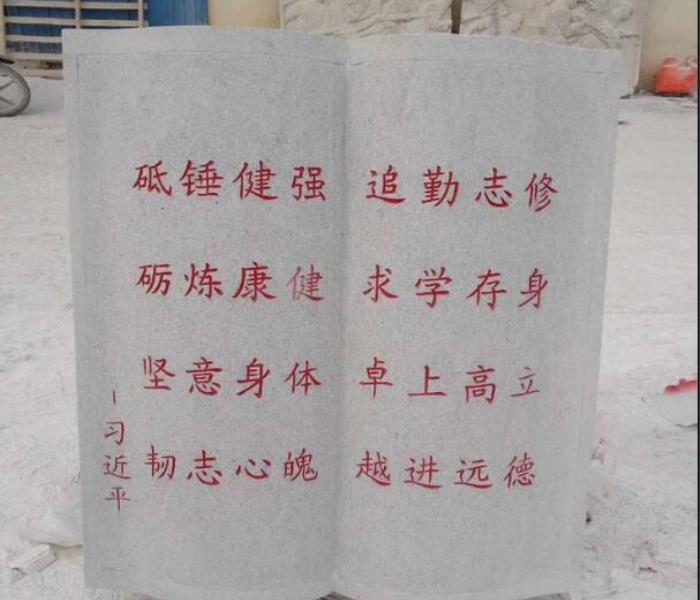 修身立德
志存高远
勤学上进
追求卓越
强健体魄
健康身心
锤炼意志
砥砺坚韧
–习近平